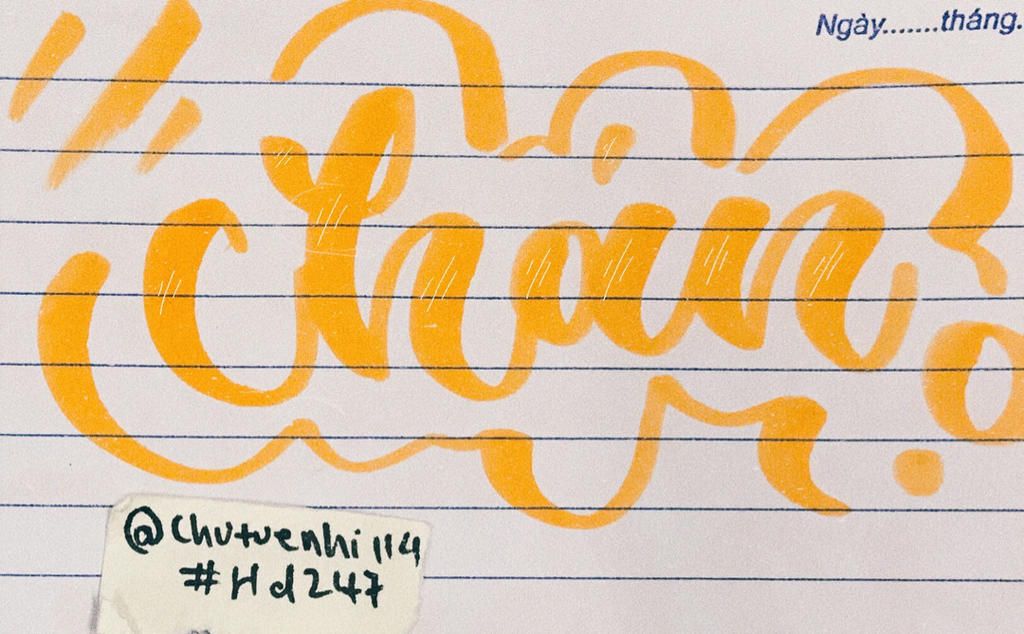 Ngày.......tháng.
chán
@chutuenhi114
#Hd247